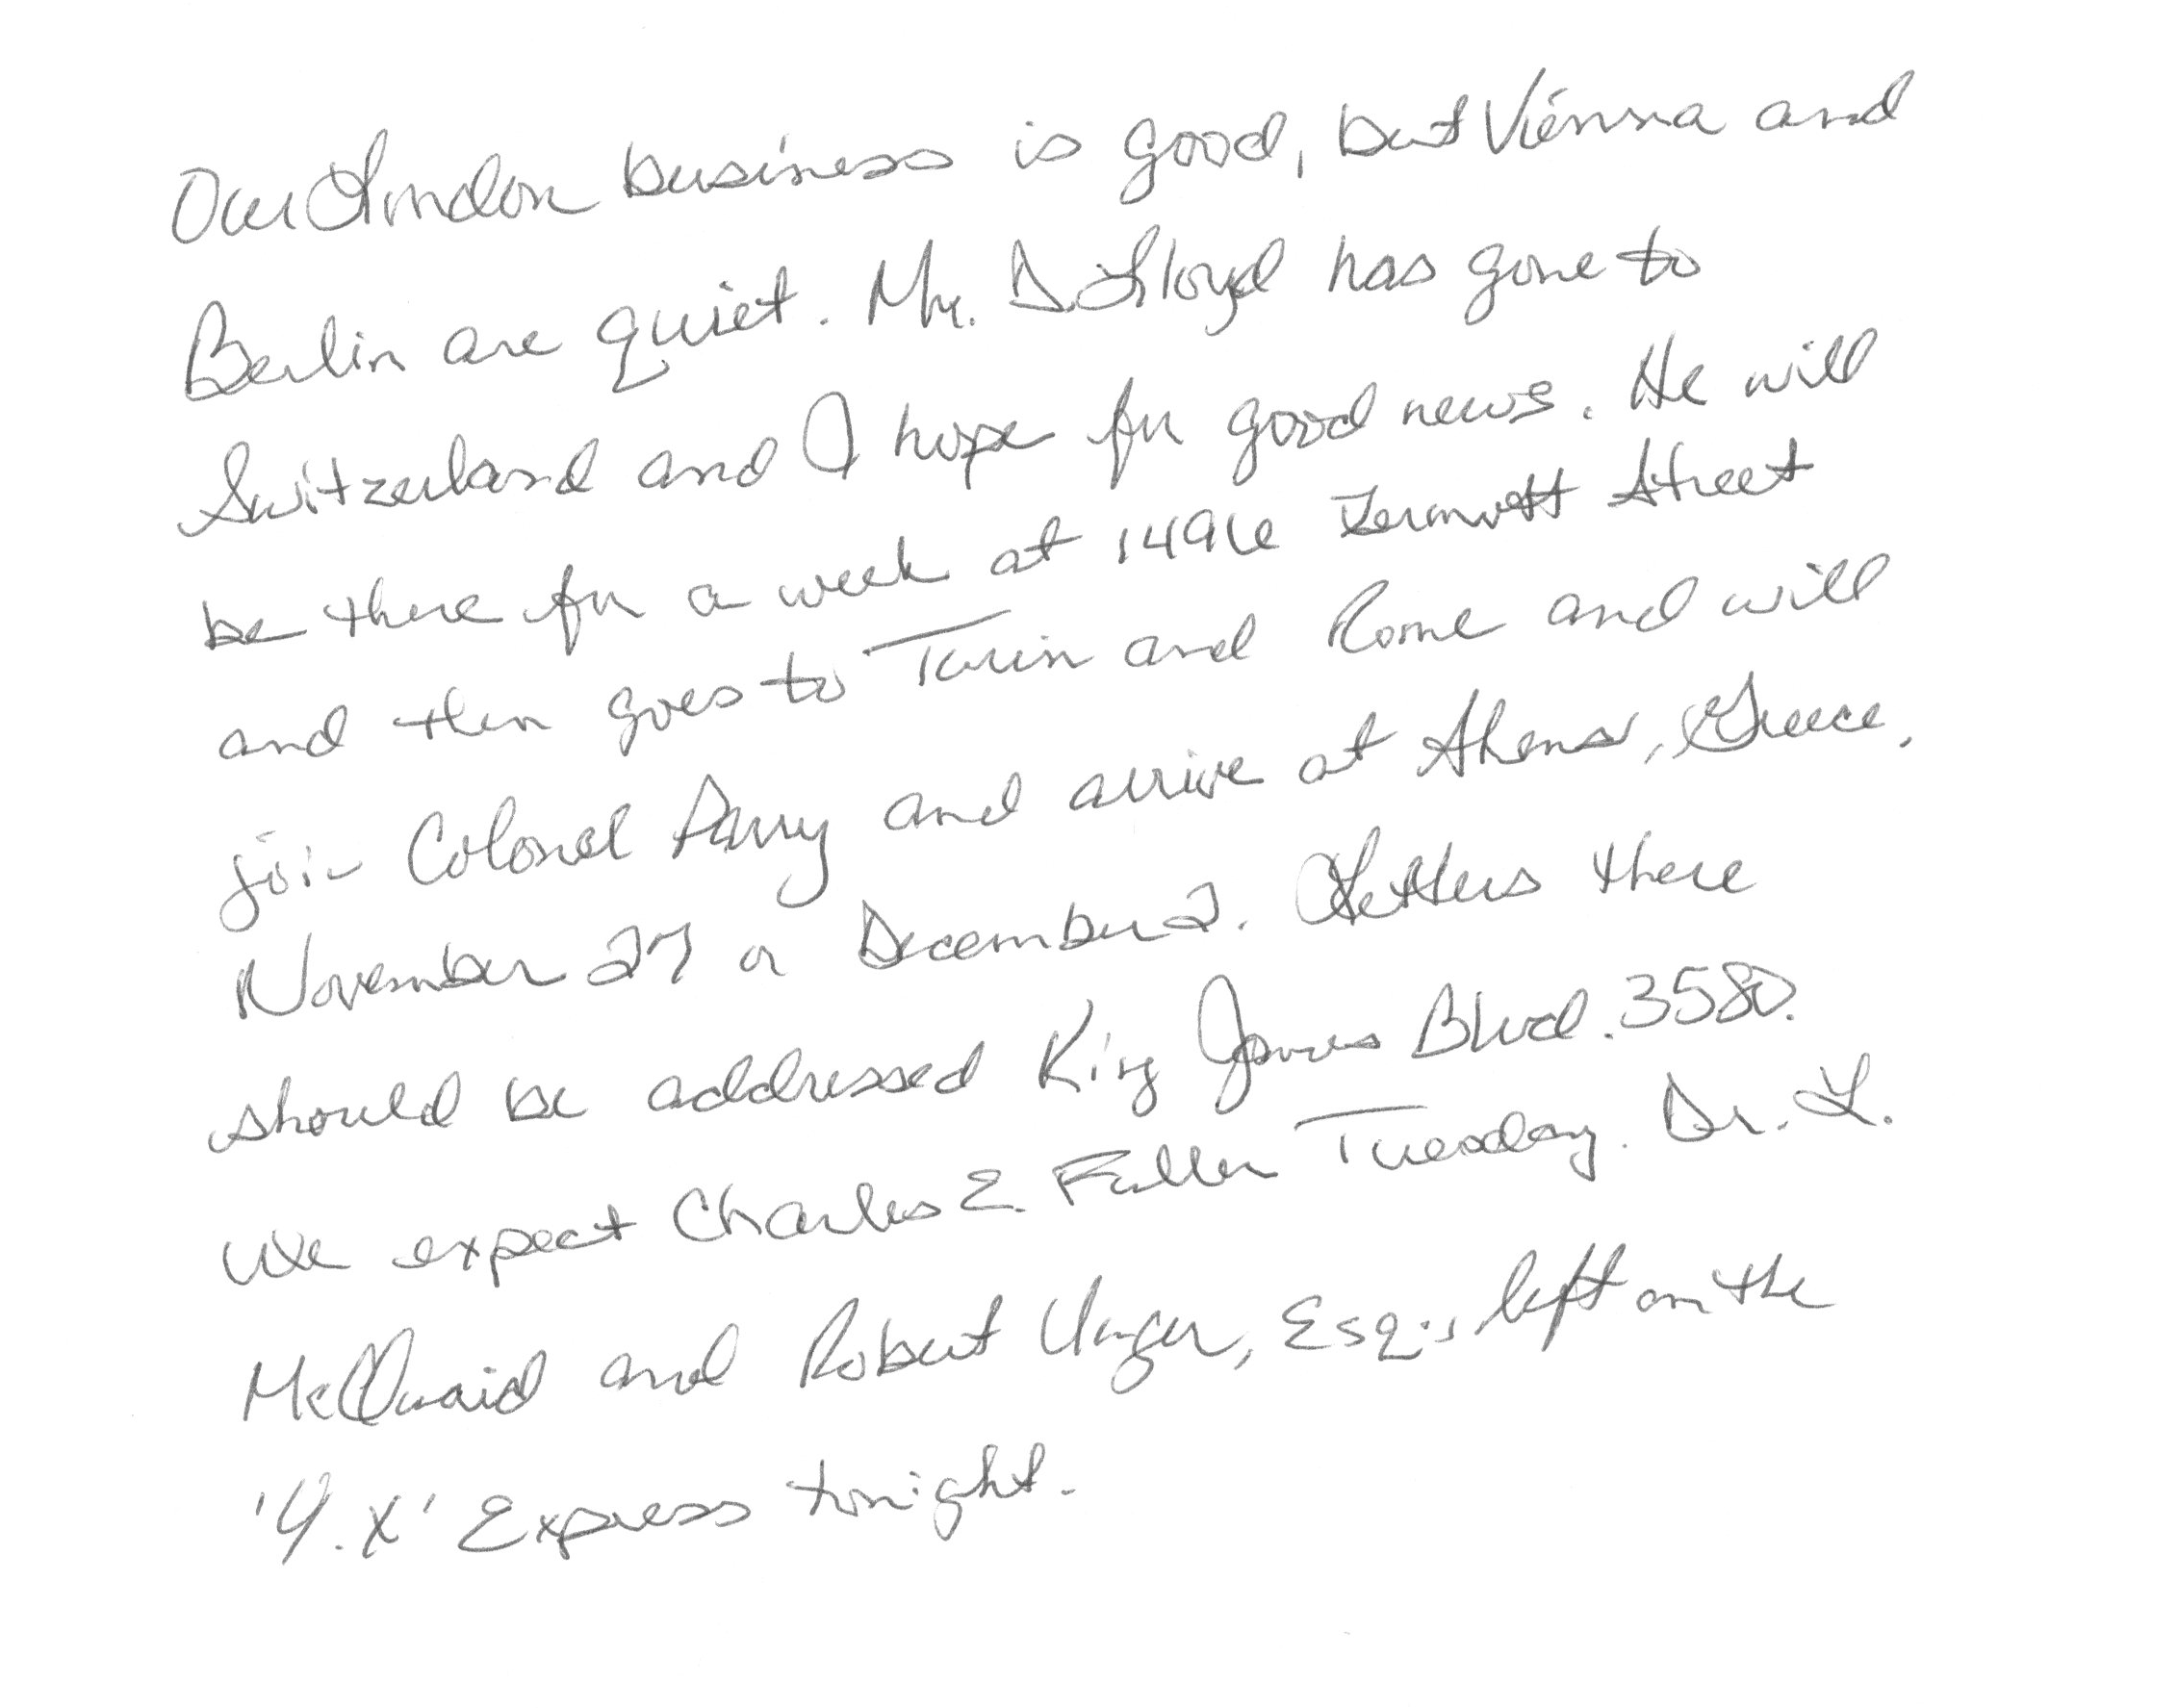 Our London business is good, but Vienna and
Berlin are quiet. Mr. D. Lloyd has gone to
Switzerland and I hope for good news. He will
be there for a week at 1496 Zermott Street
and then goes to Turin and Rome and will
join Colonel Parry and arrive at Athens, Greece,
November 27 or December 2. Letters there
should be addressed King James Blvd. 3580.
We expect Charles E. Fuller Tuesday. Dr. L.
McQuaid and Robert Unger, Esq., left on the
'Y.X' Express tonight.